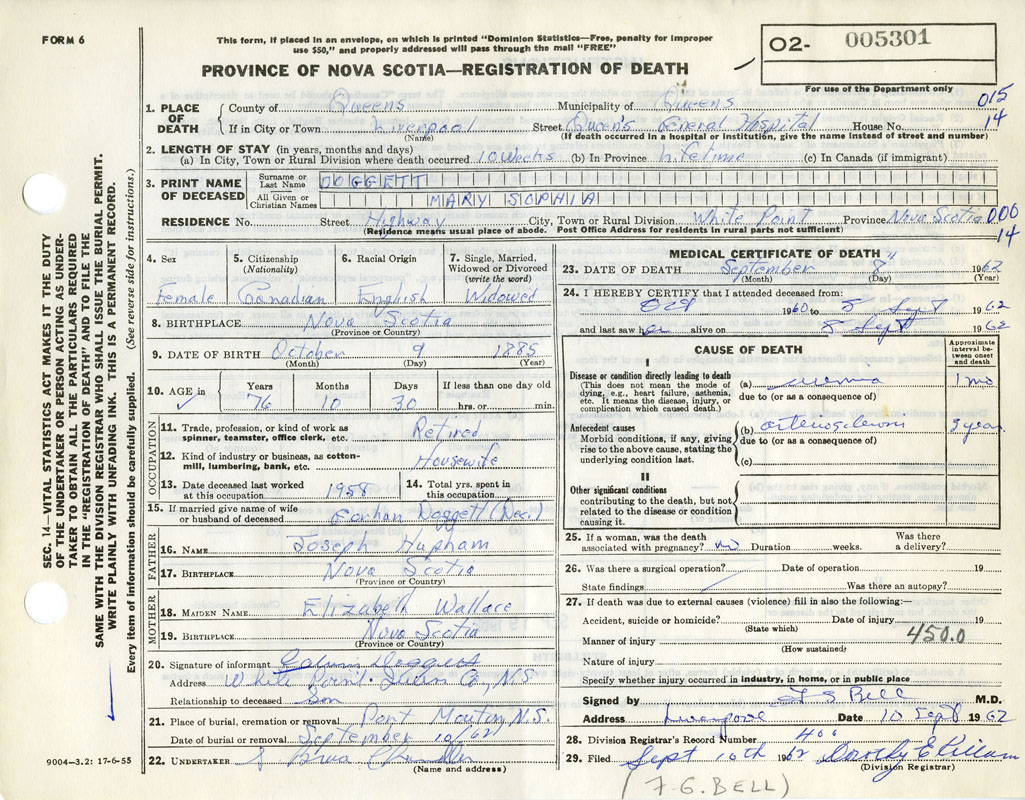 FORM 6
This form, if placed in an envelope, on which is printed "Dominion Statistics—Free, penalty for improper
use $50," and properly addressed will pass through the mail "FREE"
PROVINCE OF NOVA SCOTIA—REGISTRATION OF DEATH
O2- 005301
For use of the Department only
015
14
1. PLACE OF DEATH
County of Queens Municipality of Queens
If in City or Town Liverpool Street Queen's General Hospital House No.
(Name) (If death occurred in a hospital or institution, give the name instead of street and number)
2. LENGTH OF STAY (in years, months and days)
(a) In City, Town or Rural Division where death occurred 10 Weeks (b) In Province Lifetime (c) In Canada (if immigrant)
3. PRINT NAME OF DECEASED
Surname or Last Name DOGGETT
All Given or Christian Names MARY SOPHIA
RESIDENCE No. Street Highway City, Town or Rural Division White Point Province Nova Scotia
(Residence means usual place of abode. Post Office Address for residents in rural parts not sufficient)
000
14
4. Sex
Female
5. Citizenship
(Nationality)
Canadian
6. Racial Origin
English
7. Single, Married,
Widowed or Divorced
(write the word)
Widowed
8. BIRTHPLACE Nova Scotia
(Province or Country)
9. DATE OF BIRTH October 9 1885
(Month) (Day) (Year)
10. AGE in Years Months Days If less than one day old
76 10 30 hrs. or min.
OCCUPATION
11. Trade, profession, or kind of work as
spinner, teamster, office clerk, etc. Retired
12. Kind of industry or business, as cotton-
mill, lumbering, bank, etc. Housewife
13. Date deceased last worked
at this occupation 1958
14. Total yrs. spent in
this occupation
15. If married give name of wife
or husband of deceased Doggett (Dec.)
FATHER
16. NAME Joseph Hupham
17. BIRTHPLACE Nova Scotia
(Province or Country)
MOTHER
18. MAIDEN NAME Elizabeth Wallace
19. BIRTHPLACE Nova Scotia
(Province or Country)
20. Signature of informant Doggett
Address White Point Queens Co, N.S.
Relationship to deceased Son
21. Place of burial, cremation or removal Port Mouton, N.S.
Date of burial or removal September 10/62
22. UNDERTAKER
(Name and address)
MEDICAL CERTIFICATE OF DEATH
23. DATE OF DEATH September 8 1962
(Month) (Day) (Year)
24. I HEREBY CERTIFY that I attended deceased from:
Oct 1960 to 8 Sept 1962
and last saw her alive on 8 Sept 1962
CAUSE OF DEATH
Approximate
interval be-
tween onset
and death
I
Disease or condition directly leading to death
(This does not mean the mode of
dying, e.g., heart failure, asthenia,
etc. It means the disease, injury, or
complication which caused death.)
(a) uremia 1 mo
due to (or as a consequence of)
Antecedent causes
Morbid conditions, if any, giving
rise to the above cause, stating the
underlying condition last.
(b) arteriosclerosis years
due to (or as a consequence of)
(c)
II
Other significant conditions
contributing to the death, but not
related to the disease or condition
causing it.
25. If a woman, was the death
associated with pregnancy? no Duration weeks. Was there
a delivery?
26. Was there a surgical operation? Date of operation 19
State findings Was there an autopsy?
27. If death was due to external causes (violence) fill in also the following:—
Accident, suicide or homicide? Date of injury 19
(State which)
Manner of injury 450.0
(How sustained)
Nature of injury
Specify whether injury occurred in industry, in home, or in public place
Signed by F G Bell M.D.
Address Liverpool Date 10 Sept 1962
28. Division Registrar's Record Number
29. Filed Sept 10th 1962 Dorothy E Killam
(Division Registrar)
(F. G. BELL)
SEC. 14—VITAL STATISTICS ACT MAKES IT THE DUTY
OF THE UNDERTAKER OR PERSON ACTING AS UNDER-
TAKER TO OBTAIN ALL THE PARTICULARS REQUIRED
IN THE "REGISTRATION OF DEATH" AND TO FILE THE
SAME WITH THE DIVISION REGISTRAR WHO SHALL ISSUE THE BURIAL PERMIT.
WRITE PLAINLY WITH UNFADING INK. THIS IS A PERMANENT RECORD.
Every item of information should be carefully supplied. (See reverse side for instructions.)
9004—3.2: 17-6-55